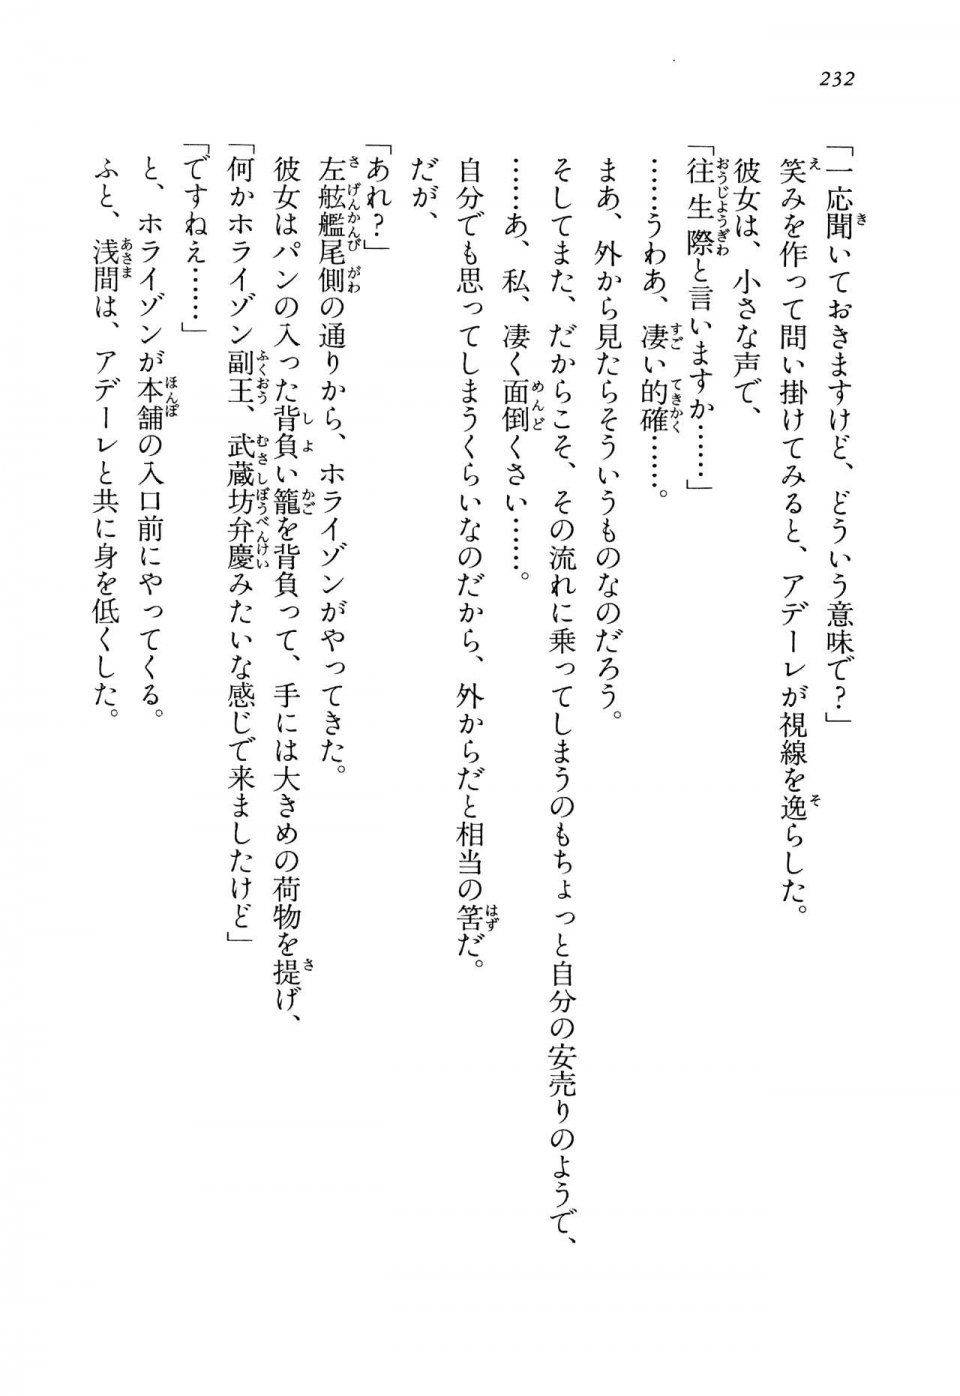 232
「一応聞いておきますけど、どういう意味で？」
笑みを作って問い掛けてみると、アデーレが視線を逸らした。
彼女は、小さな声で、
「往生際と言いますか……」
……うわあ、凄い的確……。
まあ、外から見たらそういうものなのだろう。
そしてまた、だからこそ、その流れに乗ってしまうのもちょっと自分の安売りのようで、
……あ、私、凄く面倒くさい……。
自分でも思ってしまうくらいなのだから、外からだと相当の筈だ。
だが、
「あれ？」
左舷艦尾側の通りから、ホライゾンがやってきた。
彼女はパンの入った背負い籠を背負って、手には大きめの荷物を提げ、
「何かホライゾン副王、武蔵坊弁慶みたいな感じで来ましたけど」
「ですねえ……」
と、ホライゾンが本舗の入口前にやってくる。
ふと、浅間は、アデーレと共に身を低くした。